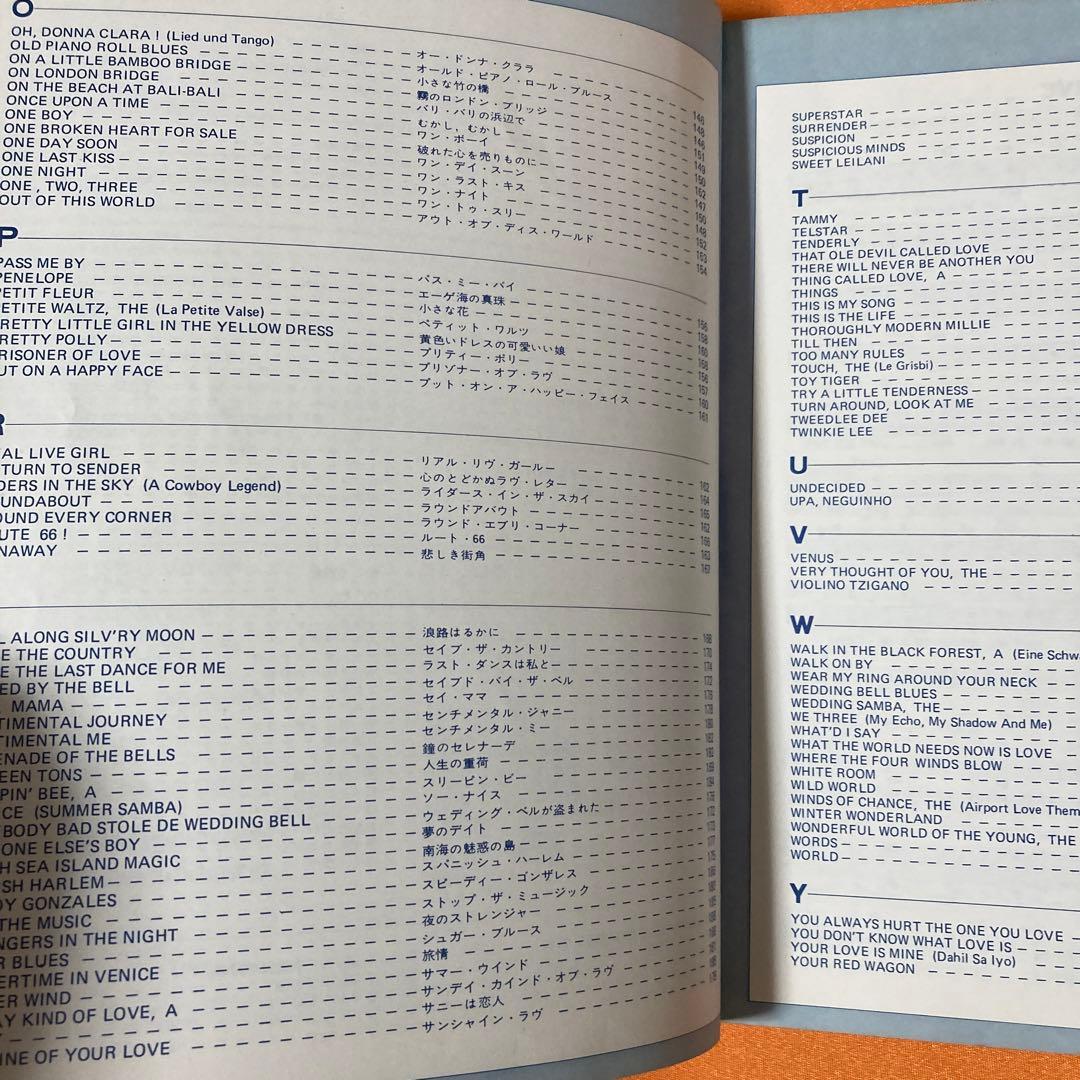 O
OH, DONNA CLARA ! (Lied und Tango) オー・ドンナ・クララ 146
OLD PIANO ROLL BLUES オールド・ピアノ・ロール・ブルース 148
ON A LITTLE BAMBOO BRIDGE 小さな竹の橋 146
ON LONDON BRIDGE 霧のロンドン・ブリッジ 151
ON THE BEACH AT BALI-BALI バリ・バリの浜辺で 149
ONCE UPON A TIME むかし，むかし 150
ONE BOY ワン・ボーイ 152
ONE BROKEN HEART FOR SALE 破れた心を売りものに 147
ONE DAY SOON ワン・デイ・スーン 150
ONE LAST KISS ワン・ラスト・キス 148
ONE NIGHT ワン・ナイト 152
ONE , TWO, THREE ワン・トゥ・スリー 153
OUT OF THIS WORLD アウト・オブ・ディス・ワールド 154
P
PASS ME BY パス・ミー・バイ 156
PENELOPE エーゲ海の真珠 158
PETIT FLEUR 小さな花 160
ETITE WALTZ, THE (La Petite Valse) ペティット・ワルツ 158
RETTY LITTLE GIRL IN THE YELLOW DRESS 黄色いドレスの可愛いい娘 156
RETTY POLLY プリティー・ポリー 157
RISONER OF LOVE プリゾナー・オブ・ラヴ 160
UT ON A HAPPY FACE プット・オン・ア・ハッピー・フェイス 161
R
AL LIVE GIRL リアル・リヴ・ガール 162
TURN TO SENDER 心のとどかぬラヴ・レター 164
DERS IN THE SKY (A Cowboy Legend) ライダース・イン・ザ・スカイ 165
UNDABOUT ラウンドアバウト 162
OUND EVERY CORNER ラウンド・エブリ・コーナー 166
UTE 66 ! ルート・66 163
NAWAY 悲しき街角 167
L ALONG SILV'RY MOON 浪路はるかに
E THE COUNTRY セイブ・ザ・カントリー
E THE LAST DANCE FOR ME ラスト・ダンスは私と
ED BY THE BELL セイブド・バイ・ザ・ベル
MAMA セイ・ママ
TIMENTAL JOURNEY センチメンタル・ジャニー
TIMENTAL ME センチメンタル・ミー
ENADE OF THE BELLS 鐘のセレナーデ
EEN TONS 人生の重荷
PIN' BEE, A スリーピン・ビー
CE (SUMMER SAMBA) ソー・ナイス
BODY BAD STOLE DE WEDDING BELL ウェディング・ベルが盗まれた
ONE ELSE'S BOY 夢のデイト
H SEA ISLAND MAGIC 南海の魅惑の島
SH HARLEM スパニッシュ・ハーレム
DY GONZALES スピーディー・ゴンザレス
THE MUSIC ストップ・ザ・ミュージック
NGERS IN THE NIGHT 夜のストレンジャー
R BLUES シュガー・ブルース
ERTIME IN VENICE 旅情
ER WIND サマー・ウインド
AY KIND OF LOVE, A サンデイ・カインド・オブ・ラヴ
サニーは恋人
INE OF YOUR LOVE サンシャイン・ラヴ
SUPERSTAR
SURRENDER
SUSPICION
SUSPICIOUS MINDS
SWEET LEILANI
T
TAMMY
TELSTAR
TENDERLY
THAT OLE DEVIL CALLED LOVE
THERE WILL NEVER BE ANOTHER YOU
THING CALLED LOVE, A
THINGS
THIS IS MY SONG
THIS IS THE LIFE
THOROUGHLY MODERN MILLIE
TILL THEN
TOO MANY RULES
TOUCH, THE (Le Grisbi)
TOY TIGER
TRY A LITTLE TENDERNESS
TURN AROUND, LOOK AT ME
TWEEDLEE DEE
TWINKIE LEE
U
UNDECIDED
UPA, NEGUINHO
V
VENUS
VERY THOUGHT OF YOU, THE
VIOLINO TZIGANO
W
WALK IN THE BLACK FOREST, A (Eine Schwa
WALK ON BY
WEAR MY RING AROUND YOUR NECK
WEDDING BELL BLUES
WEDDING SAMBA, THE
WE THREE (My Echo, My Shadow And Me)
WHAT'D I SAY
WHAT THE WORLD NEEDS NOW IS LOVE
WHERE THE FOUR WINDS BLOW
WHITE ROOM
WILD WORLD
WINDS OF CHANCE, THE (Airport Love Them
WINTER WONDERLAND
WONDERFUL WORLD OF THE YOUNG, THE
WORDS
WORLD
Y
YOU ALWAYS HURT THE ONE YOU LOVE
YOU DON'T KNOW WHAT LOVE IS
YOUR LOVE IS MINE (Dahil Sa Iyo)
YOUR RED WAGON